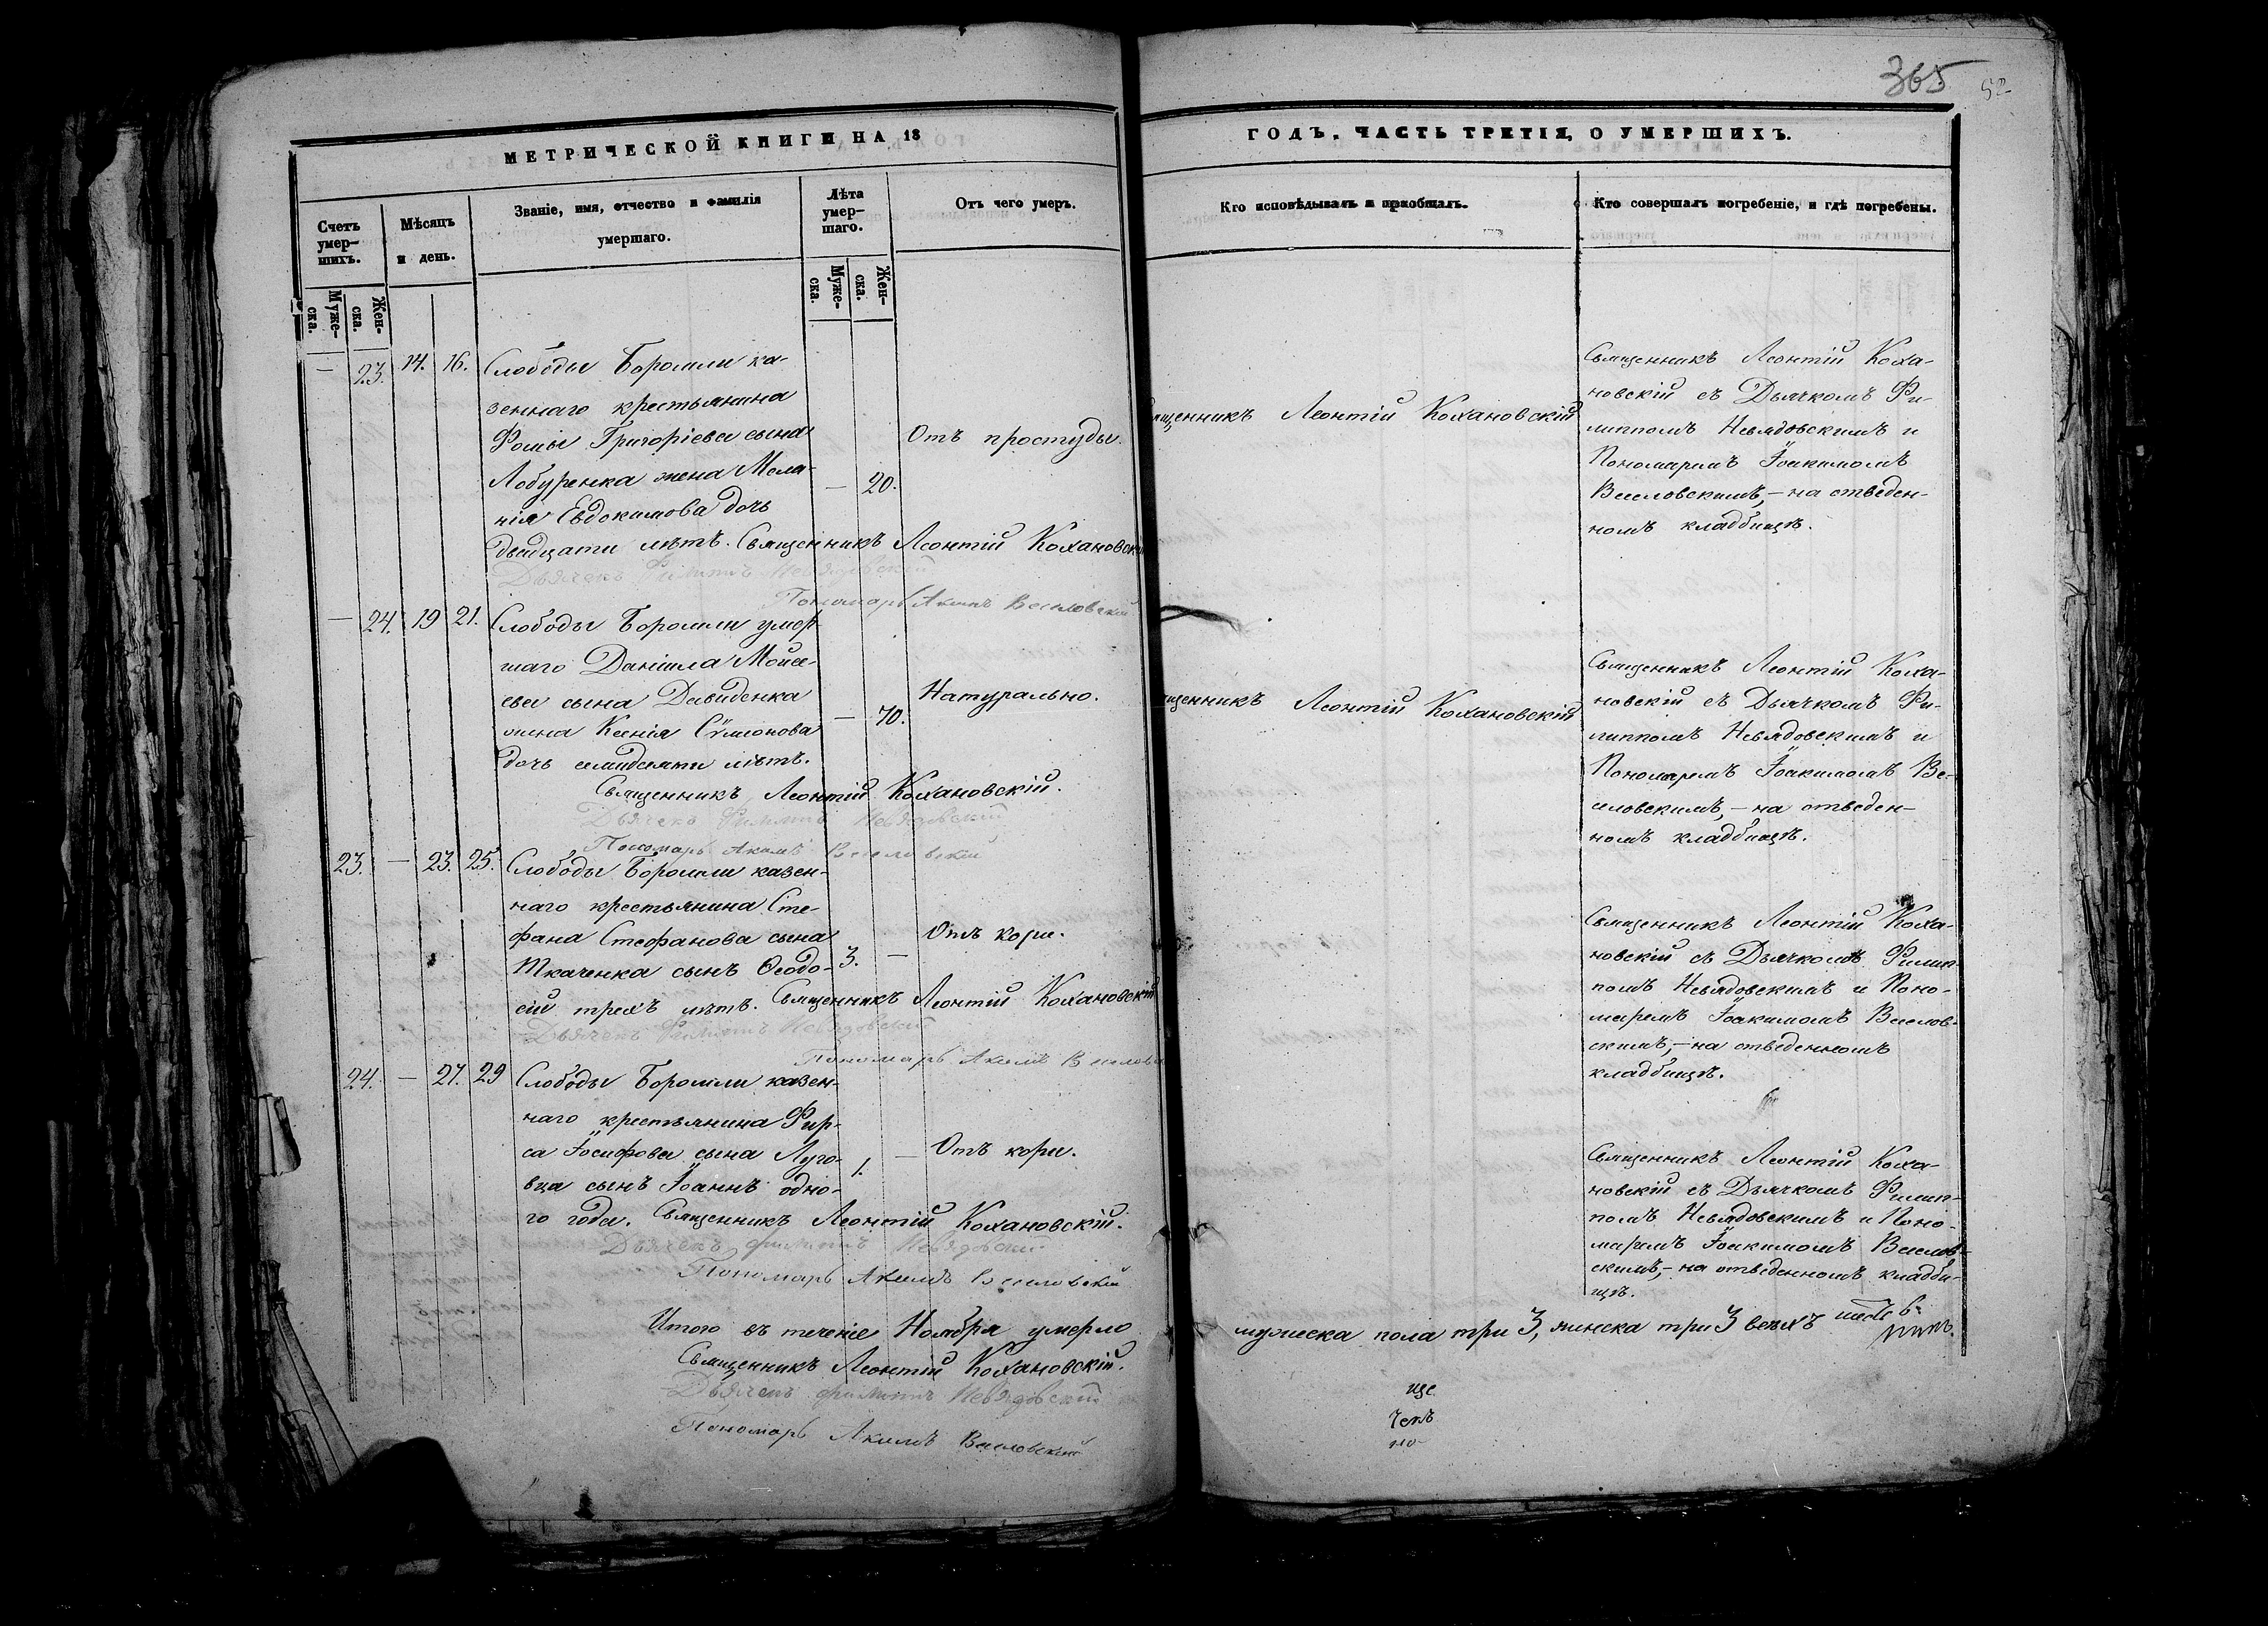 365
52
МЕТРИЧЕСКОЙ КНИГИ НА 18
ГОДЪ. ЧАСТЬ ТРЕТІЯ, О УМЕРШИХЪ.
Счетъ умер-
шихъ.
Муже-
ска.
Жен-
ска.
Мѣсяцъ
и день.
Званіе, имя, отчество и фамилія
умершаго.
Лѣта
умер-
шаго.
Муже-
ска.
Жен-
ска.
Отъ чего умеръ.
Кто исповѣдывалъ и пріобщалъ.
Кто совершалъ погребеніе, и гдѣ погребены.
— 23. 14. 16. Слободы Боромли ка-
зеннаго крестьянина
Фомы Григоріева сына
Лобуренка жена Мела-
нія Евдокимова дочь
двадцати лѣтъ. Священникъ Леонтій Кохановскій
— 20.
Отъ простуды.
Дьячекъ Филиппъ Невядовскій
Пономарь Акимъ Веселовскій
Священникъ Леонтій Кохановскій
Священникъ Леонтій Коха-
новскій съ Дьячкомъ Фи-
липпомъ Невядовскимъ и
Пономаремъ Іоакимомъ
Веселовскимъ,— на отведен-
номъ кладбищѣ.
— 24. 19 21. Слободы Боромли умер-
шаго Даніила Мойсе-
ева сына Давиденка
жена Ксенія Сѵмеонова
дочь семидесяти лѣтъ.
— 70.
Натурально.
Священникъ Леонтій Кохановскій.
Дьячекъ Филиппъ Невядовскій
Пономарь Акимъ Веселовскій
Священникъ Леонтій Кохановскій
Священникъ Леонтій Коха-
новскій съ Дьячкомъ Фи-
липпомъ Невядовскимъ и
Пономаремъ Іоакимомъ Ве-
селовскимъ,— на отведен-
номъ кладбищѣ.
23. — 23. 25. Слободы Боромли казен-
наго крестьянина Сте-
фана Стефанова сына
Ткаченка сынъ Ѳеодо-
сій трехъ лѣтъ. Священникъ Леонтій Кохановскій
3. —
Отъ кори.
Дьячекъ Филиппъ Невядовскій
Пономарь Акимъ Веселовскій
Священникъ Леонтій Коха-
новскій съ Дьячкомъ Филип-
помъ Невядовскимъ и Поно-
маремъ Іоакимомъ Веселов-
скимъ,— на отведенномъ
кладбищѣ.
24. — 27. 29 Слободы Боромли казен-
наго крестьянина Фир-
са Іосифова сына Луго-
вца сынъ Іоаннъ одно-
го года. Священникъ Леонтій Кохановскій.
1. —
Отъ кори.
Дьячекъ Филиппъ Невядовскій
Пономарь Акимъ Веселовскій
Священникъ Леонтій Коха-
новскій съ Дьячкомъ Филип-
помъ Невядовскимъ и Поно-
маремъ Іоакимомъ Веселов-
скимъ,— на отведенномъ кладби-
щѣ.
Итого въ теченіе Ноября умерло
мужеска пола три 3, женска три 3 всѣхъ шесть 6.
Священникъ Леонтій Кохановскій.
Дьячекъ Филиппъ Невядовскій
Пономарь Акимъ Веселовскій
ще
чекъ
но-